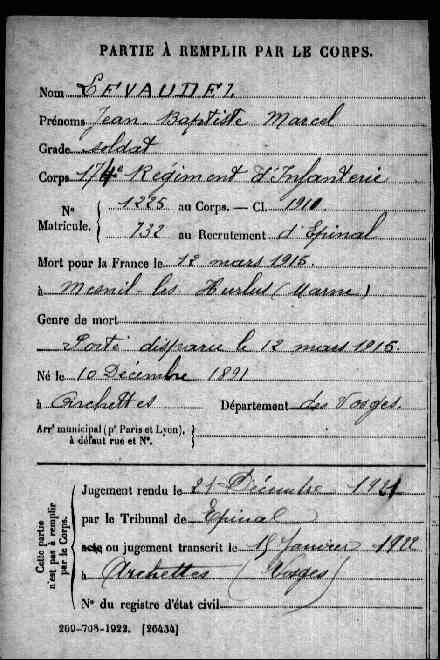 PARTIE À REMPLIR PAR LE CORPS.
Nom LEVAUDEL
Prénoms Jean Baptiste Marcel
Grade soldat
Corps 174e Régiment d'Infanterie
N° Matricule. 1225 au Corps. — Cl. 1911
732 au Recrutement d'Epinal
Mort pour la France le 12 mars 1915.
à Mesnil les Hurlus (Marne)
Genre de mort
Porté disparu le 12 mars 1915.
Né le 10 Décembre 1891
à Archettes Département des Vosges.
Arrt municipal (pr Paris et Lyon),
à défaut rue et N°.
Cette partie
n'est pas à remplir
par le Corps.
Jugement rendu le 21 Décembre 1921
par le Tribunal de Epinal
acte ou jugement transcrit le Janvier 1922
à Archettes (Vosges)
N° du registre d'état civil
269-708-1922. [26434]